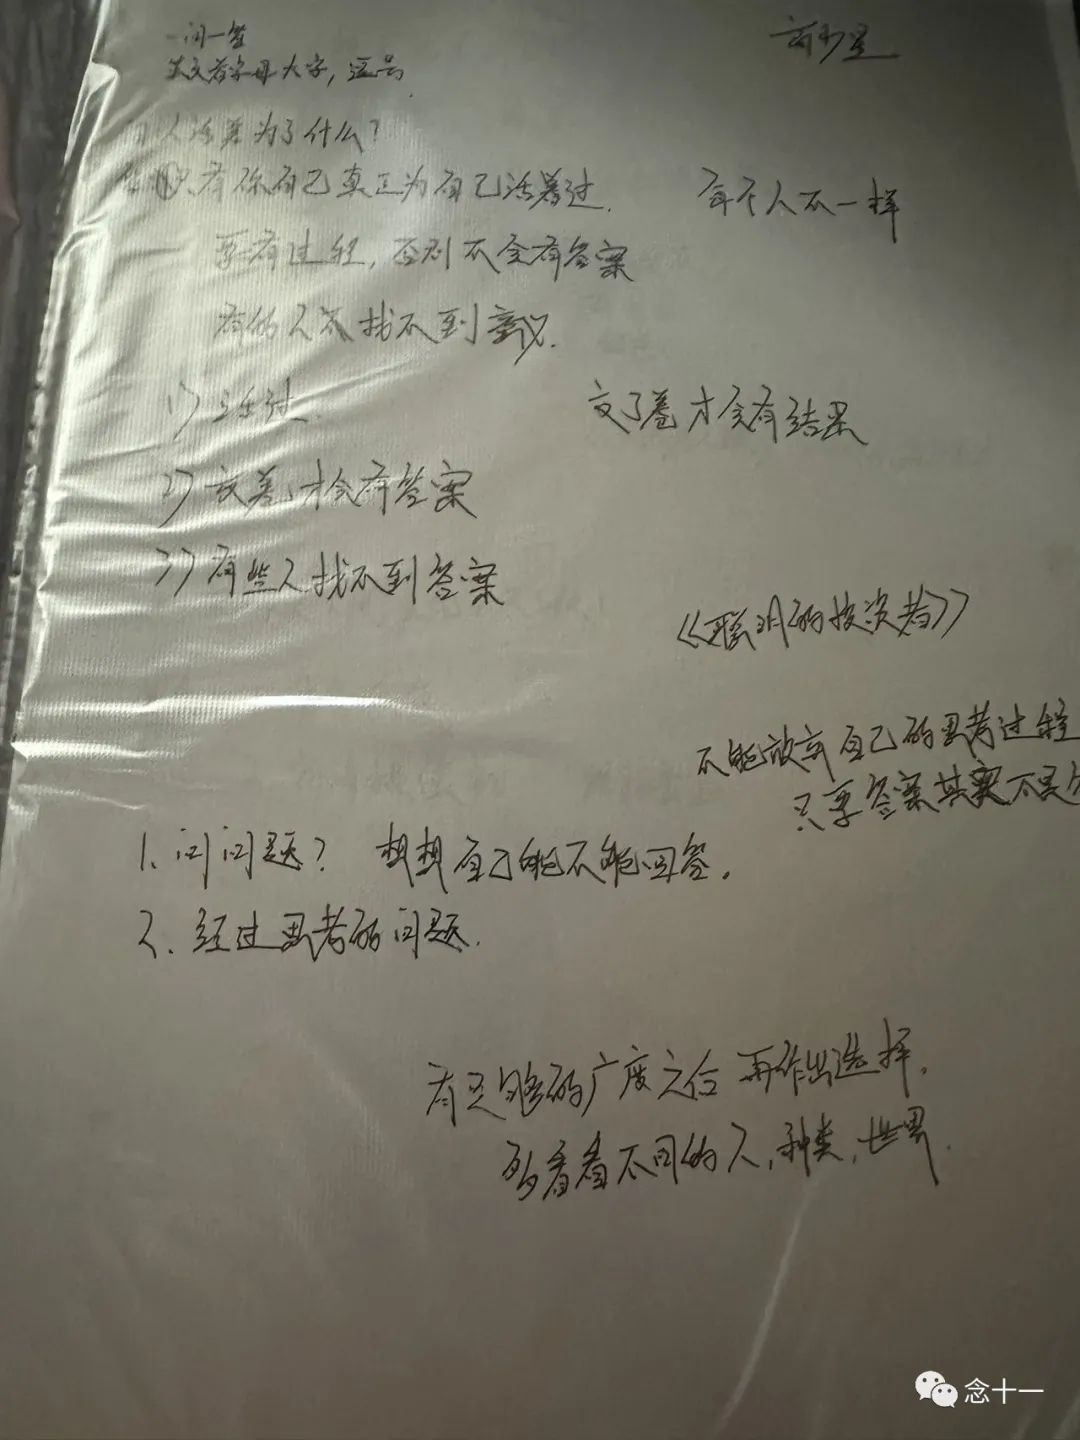 一问一答
英文首字母大字，逗号
问人活着为了什么？
只有你自己真正为自己活着过.
每个人不一样
要有过程，否则不会有答案
有的人 找不到意义.
1)
交了卷才会有结果
2) 交卷才会有答案
3) 有些人找不到答案
《聪明的投资者》
不能放弃自己的思考过程
只要答案其实不是
1、问问题？ 想想自己能不能回答。
2、经过思考的问题.
有足够的广度之后再作出选择.
多看看不同的人,种类,世界.
念十一